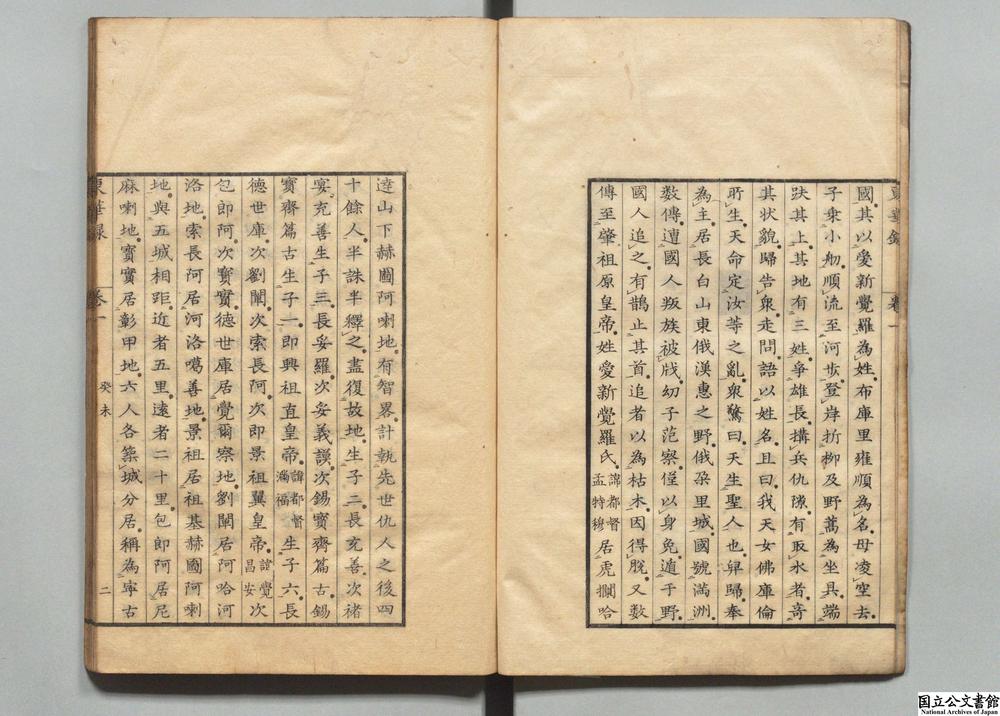 東華錄 卷一
國其以愛新覺羅為姓布庫里雍順為名母凌空去
子乗小舠順流至河步登岸折柳及野蒿為坐具端
趺其上其地有三姓爭雄長搆兵仇隙有取水者奇
其狀貌歸告衆走問語以姓名且曰我天女佛庫倫
所生天命定汝等之亂衆驚曰天生聖人也舁歸奉
為主居長白山東俄漢惠之野俄朶里城國號滿洲
數傳遭國人叛族被戕幼子范察僅以身免遁于野
國人追之有鵲止其首追者以為枯木因得脫又數
傳至肇祖原皇帝姓愛新覺羅氏諱都督孟特穆居虎攔哈
達山下赫圖阿喇地有智畧計執先世仇人之後四
十餘人半誅半釋之盡復故地生子二長充善次褚
宴充善生子三長妥羅次妥義謨次錫寶齊篇古錫
寶齊篇古生子一即興祖直皇帝諱都督滿福生子六長
德世庫次劉闡次索長阿次即景祖翼皇帝諱覺昌安次
包即阿次寶實德世庫居覺爾察地劉闡居阿哈河
洛地索長阿居河洛噶善地景祖居祖基赫圖阿喇
地與五城相距近者五里遠者二十里包即阿居尼
麻喇地寶實居彰甲地六人各築城分居稱為寧古
東華錄 卷一 癸未 二
国立公文書館
National Archives of Japan